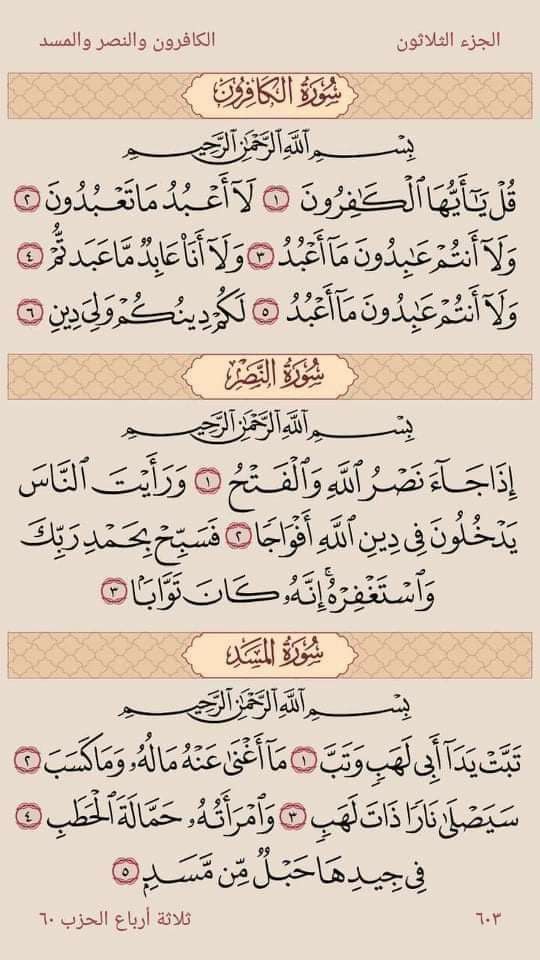 الجزء الثلاثون الكافرون والنصر والمسد
سُورَةُ الكَافِرُونَ
بِسْمِ ٱللَّهِ ٱلرَّحْمَٰنِ ٱلرَّحِيمِ
قُلْ يَٰٓأَيُّهَا ٱلْكَٰفِرُونَ ١ لَآ أَعْبُدُ مَا تَعْبُدُونَ ٢
وَلَآ أَنتُمْ عَٰبِدُونَ مَآ أَعْبُدُ ٣ وَلَآ أَنَا۠ عَابِدٌ مَّا عَبَدتُّمْ ٤
وَلَآ أَنتُمْ عَٰبِدُونَ مَآ أَعْبُدُ ٥ لَكُمْ دِينُكُمْ وَلِىَ دِينِ ٦
سُورَةُ النَّصْرِ
بِسْمِ ٱللَّهِ ٱلرَّحْمَٰنِ ٱلرَّحِيمِ
إِذَا جَآءَ نَصْرُ ٱللَّهِ وَٱلْفَتْحُ ١ وَرَأَيْتَ ٱلنَّاسَ
يَدْخُلُونَ فِى دِينِ ٱللَّهِ أَفْوَاجًا ٢ فَسَبِّحْ بِحَمْدِ رَبِّكَ
وَٱسْتَغْفِرْهُ ۚ إِنَّهُۥ كَانَ تَوَّابًۢا ٣
سُورَةُ المَسَدِ
بِسْمِ ٱللَّهِ ٱلرَّحْمَٰنِ ٱلرَّحِيمِ
تَبَّتْ يَدَآ أَبِى لَهَبٍ وَتَبَّ ١ مَآ أَغْنَىٰ عَنْهُ مَالُهُۥ وَمَا كَسَبَ ٢
سَيَصْلَىٰ نَارًا ذَاتَ لَهَبٍ ٣ وَٱمْرَأَتُهُۥ حَمَّالَةَ ٱلْحَطَبِ ٤
فِى جِيدِهَا حَبْلٌ مِّن مَّسَدٍۭ ٥
٦٠٣ ثلاثة أرباع الحزب ٦٠